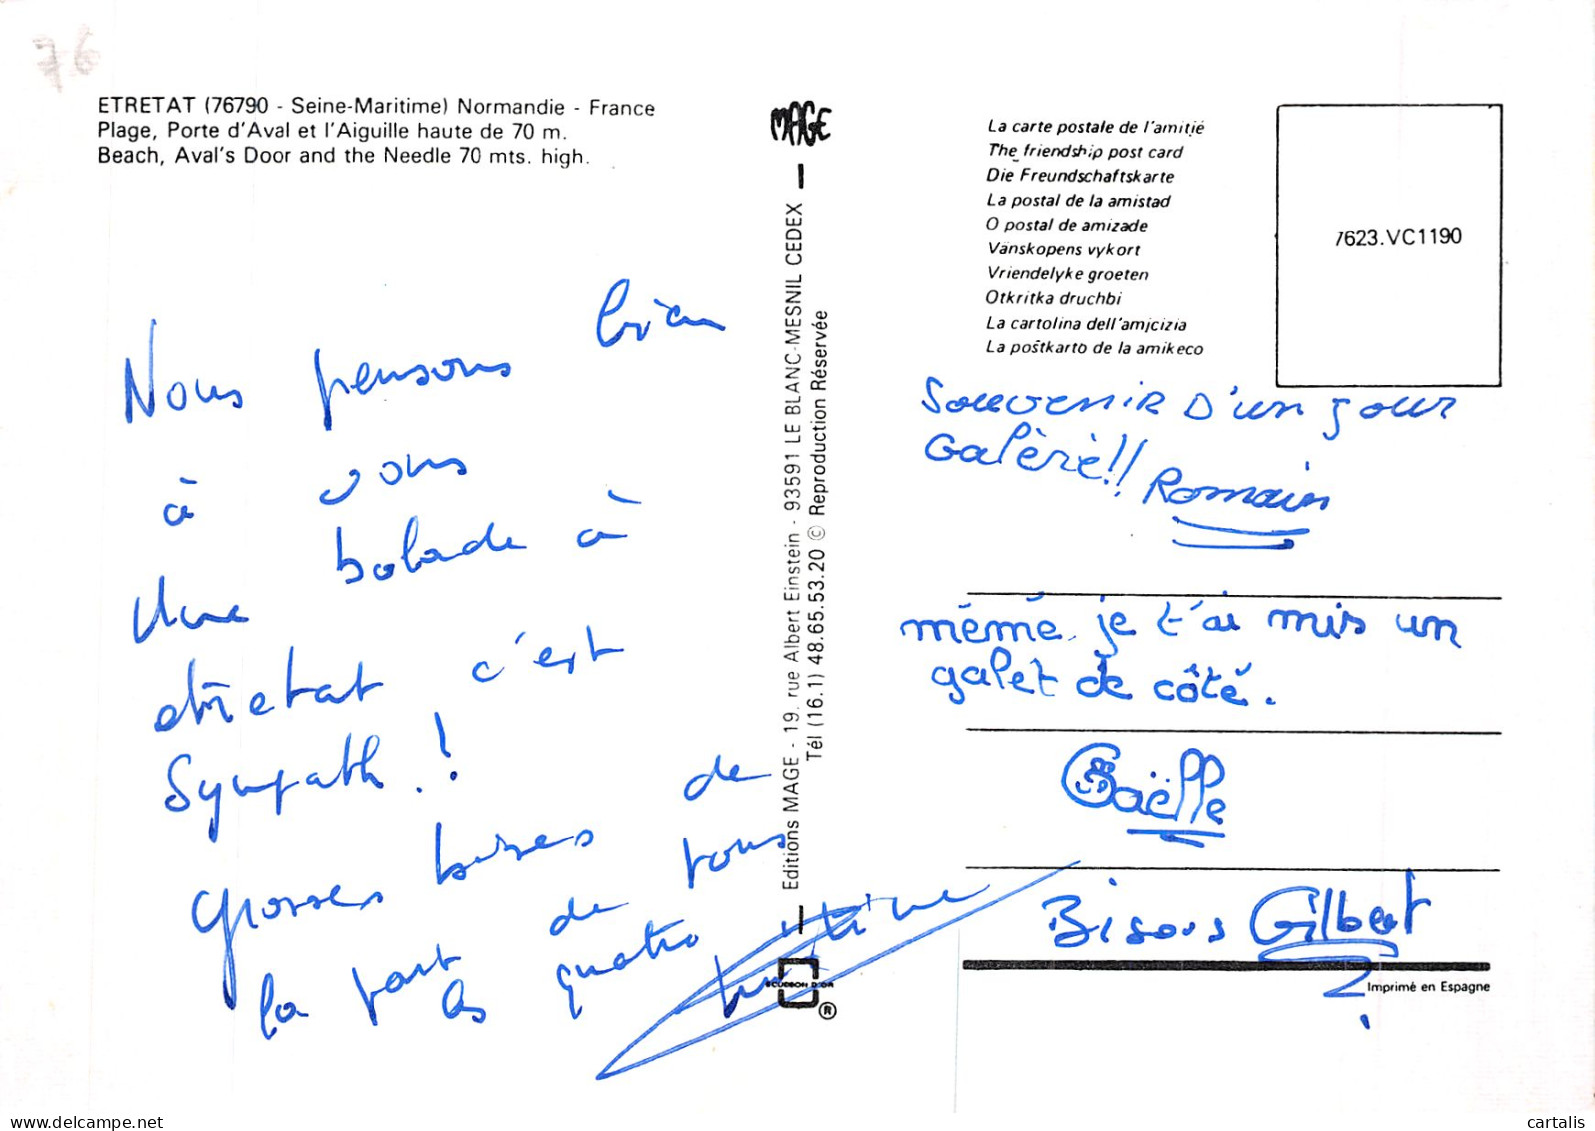 76
ETRETAT (76790 - Seine-Maritime) Normandie - France
Plage, Porte d'Aval et l'Aiguille haute de 70 m.
Beach, Aval's Door and the Needle 70 mts. high.
Nous pensons bien
à vous
Une balade à
etretat c'est
Sympath.!
grosses bises de
la part de tous
les quatre
MAGE
Editions MAGE - 19, rue Albert Einstein - 93591 LE BLANC-MESNIL CEDEX
Tél (16.1) 48.65.53.20 © Reproduction Réservée
ECUSSON D'OR
®
La carte postale de l'amitié
The friendship post card
Die Freundschaftskarte
La postal de la amistad
O postal de amizade
Vänskopens vykort
Vriendelyke groeten
Otkritka druchbi
La cartolina dell'amicizia
La poŝtkarto de la amikeco
7623.VC1190
Souvenir D'un jour
Galère!!
Romain
mémé je t'ai mis un
galet de côté.
Gaëlle
Bisous Gilbert
Imprimé en Espagne
www.delcampe.net
cartalis